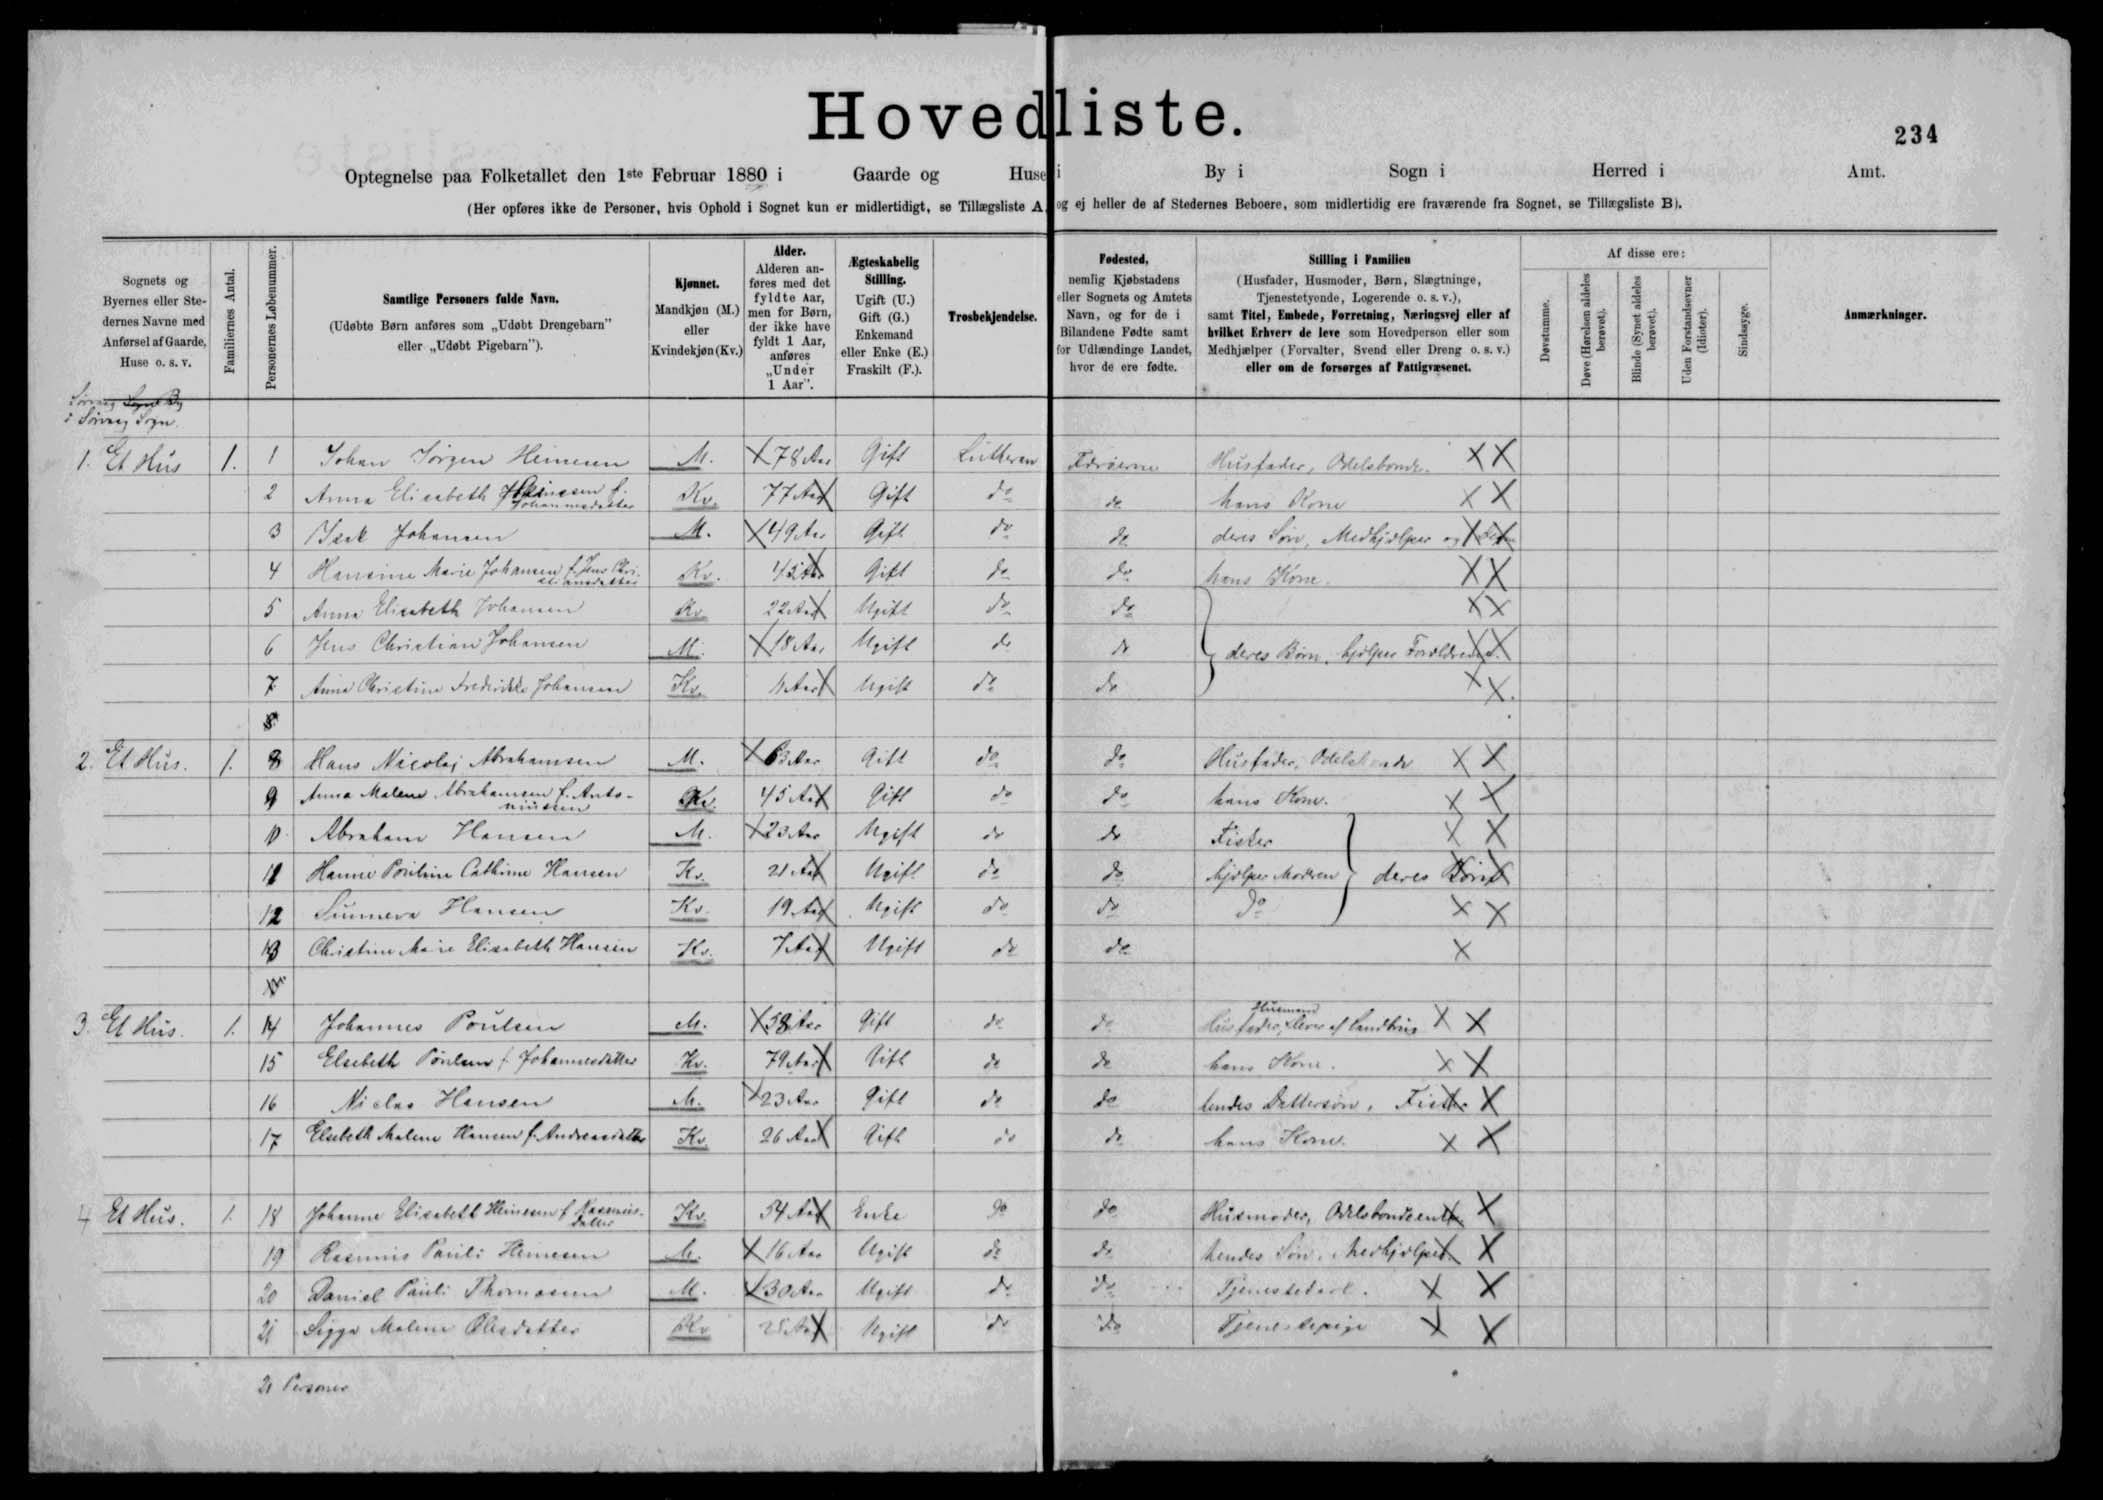 Hovedliste.
234
Optegnelse paa Folketallet den 1ste Februar 1880 i Gaarde og Huse i By i Sogn i Herred i Amt.
(Her opføres ikke de Personer, hvis Ophold i Sognet kun er midlertidigt, se Tillægsliste A, og ej heller de af Stedernes Beboere, som midlertidig ere fraværende fra Sognet, se Tillægsliste B).
Sognets og Byernes eller Stedernes Navne med Anførsel af Gaarde, Huse o. s. v.
Familiernes Antal.
Personernes Løbenummer.
Samtlige Personers fulde Navn.
(Udøbte Børn anføres som „Udøbt Drengebarn" eller „Udøbt Pigebarn").
Kjønnet.
Mandkjøn (M.) eller Kvindekjøn (Kv.)
Alder.
Alderen anføres med det fyldte Aar, men for Børn, der ikke have fyldt 1 Aar, anføres „Under 1 Aar".
Ægteskabelig Stilling.
Ugift (U.) Gift (G.) Enkemand eller Enke (E.) Fraskilt (F.).
Trosbekjendelse.
Fødested,
nemlig Kjøbstadens eller Sognets og Amtets Navn, og for de i Bilandene Fødte samt for Udlændinge Landet, hvor de ere fødte.
Stilling i Familien
(Husfader, Husmoder, Børn, Slægtninge, Tjenestetyende, Logerende o. s. v.),
samt Titel, Embede, Forretning, Næringsvej eller af hvilket Erhverv de leve som Hovedperson eller som Medhjælper (Forvalter, Svend eller Dreng o. s. v.) eller om de forsørges af Fattigvæsenet.
Af disse ere:
Døvstumme.
Døve (Hørelsen aldeles berøvet).
Blinde (Synet aldeles berøvet).
Uden Forstandsevner (Idioter).
Sindssyge.
Anmærkninger.
Sørvaag
i Sørvaag Sogn.
1. Et Hus 1. 1 Johan Jørgen Heinesen M. 78 Aar Gift Lutheran Færøerne Husfader, Odelsbonde.
2 Anna Elisabeth Heinesen f. Johannesdatter Kv. 77 Aar Gift do do hans Kone
3 Isak Johansen M. 49 Aar Gift do do deres Søn, Medhjælper og
4 Hansine Marie Johansen f. Jens Christiansdatter Kv. 45 Aar Gift do do hans Kone.
5 Anna Elisabeth Johansen Kv. 22 Aar Ugift do do
6 Jens Christian Johansen M. 18 Aar Ugift do do deres Børn, hjælper Forældrene.
7 Anna Christine Fredrikke Johansen Kv. 11 Aar Ugift do do
2. Et Hus. 1. 8 Hans Nicolaj Abrahamsen M. 63 Aar Gift do do Husfader, Odelsbonde
9 Anna Malene Abrahamsen f. Antoniussen Kv. 45 Aar Gift do do hans Kone.
10 Abraham Hansen M. 23 Aar Ugift do do Fisker
11 Hanne Pouline Cathrine Hansen Kv. 21 Aar Ugift do do hjælper Moderen deres Børn
12 Sunneva Hansen Kv. 19 Aar Ugift do do do
13 Christine Marie Elisabeth Hansen Kv. 7 Aar Ugift do do
3. Et Hus. 1. 14 Johannes Poulsen M. 58 Aar Gift do do Husfader, Husmand lever af Landbrug
15 Elsebeth Poulsen f. Johannesdatter Kv. 79 Aar Gift do do hans Kone.
16 Niclas Hansen M. 23 Aar Gift do do hendes Dattersøn, Fisker
17 Elsebeth Malene Hansen f. Andreasdatter Kv. 26 Aar Gift do do hans Kone.
4 Et Hus. 1. 18 Johanne Elisabeth Heinesen f. Rasmusdatter Kv. 54 Aar Enke do do Husmoder, Odelsbondeenke.
19 Rasmus Pauli Heinesen M. 16 Aar Ugift do do hendes Søn, Medhjælper
20 Daniel Pauli Thomasen M. 30 Aar Ugift do do Tjenestekarl.
21 Sigga Malene Olesdatter Kv. 25 Aar Ugift do do Tjenestepige
21 Personer